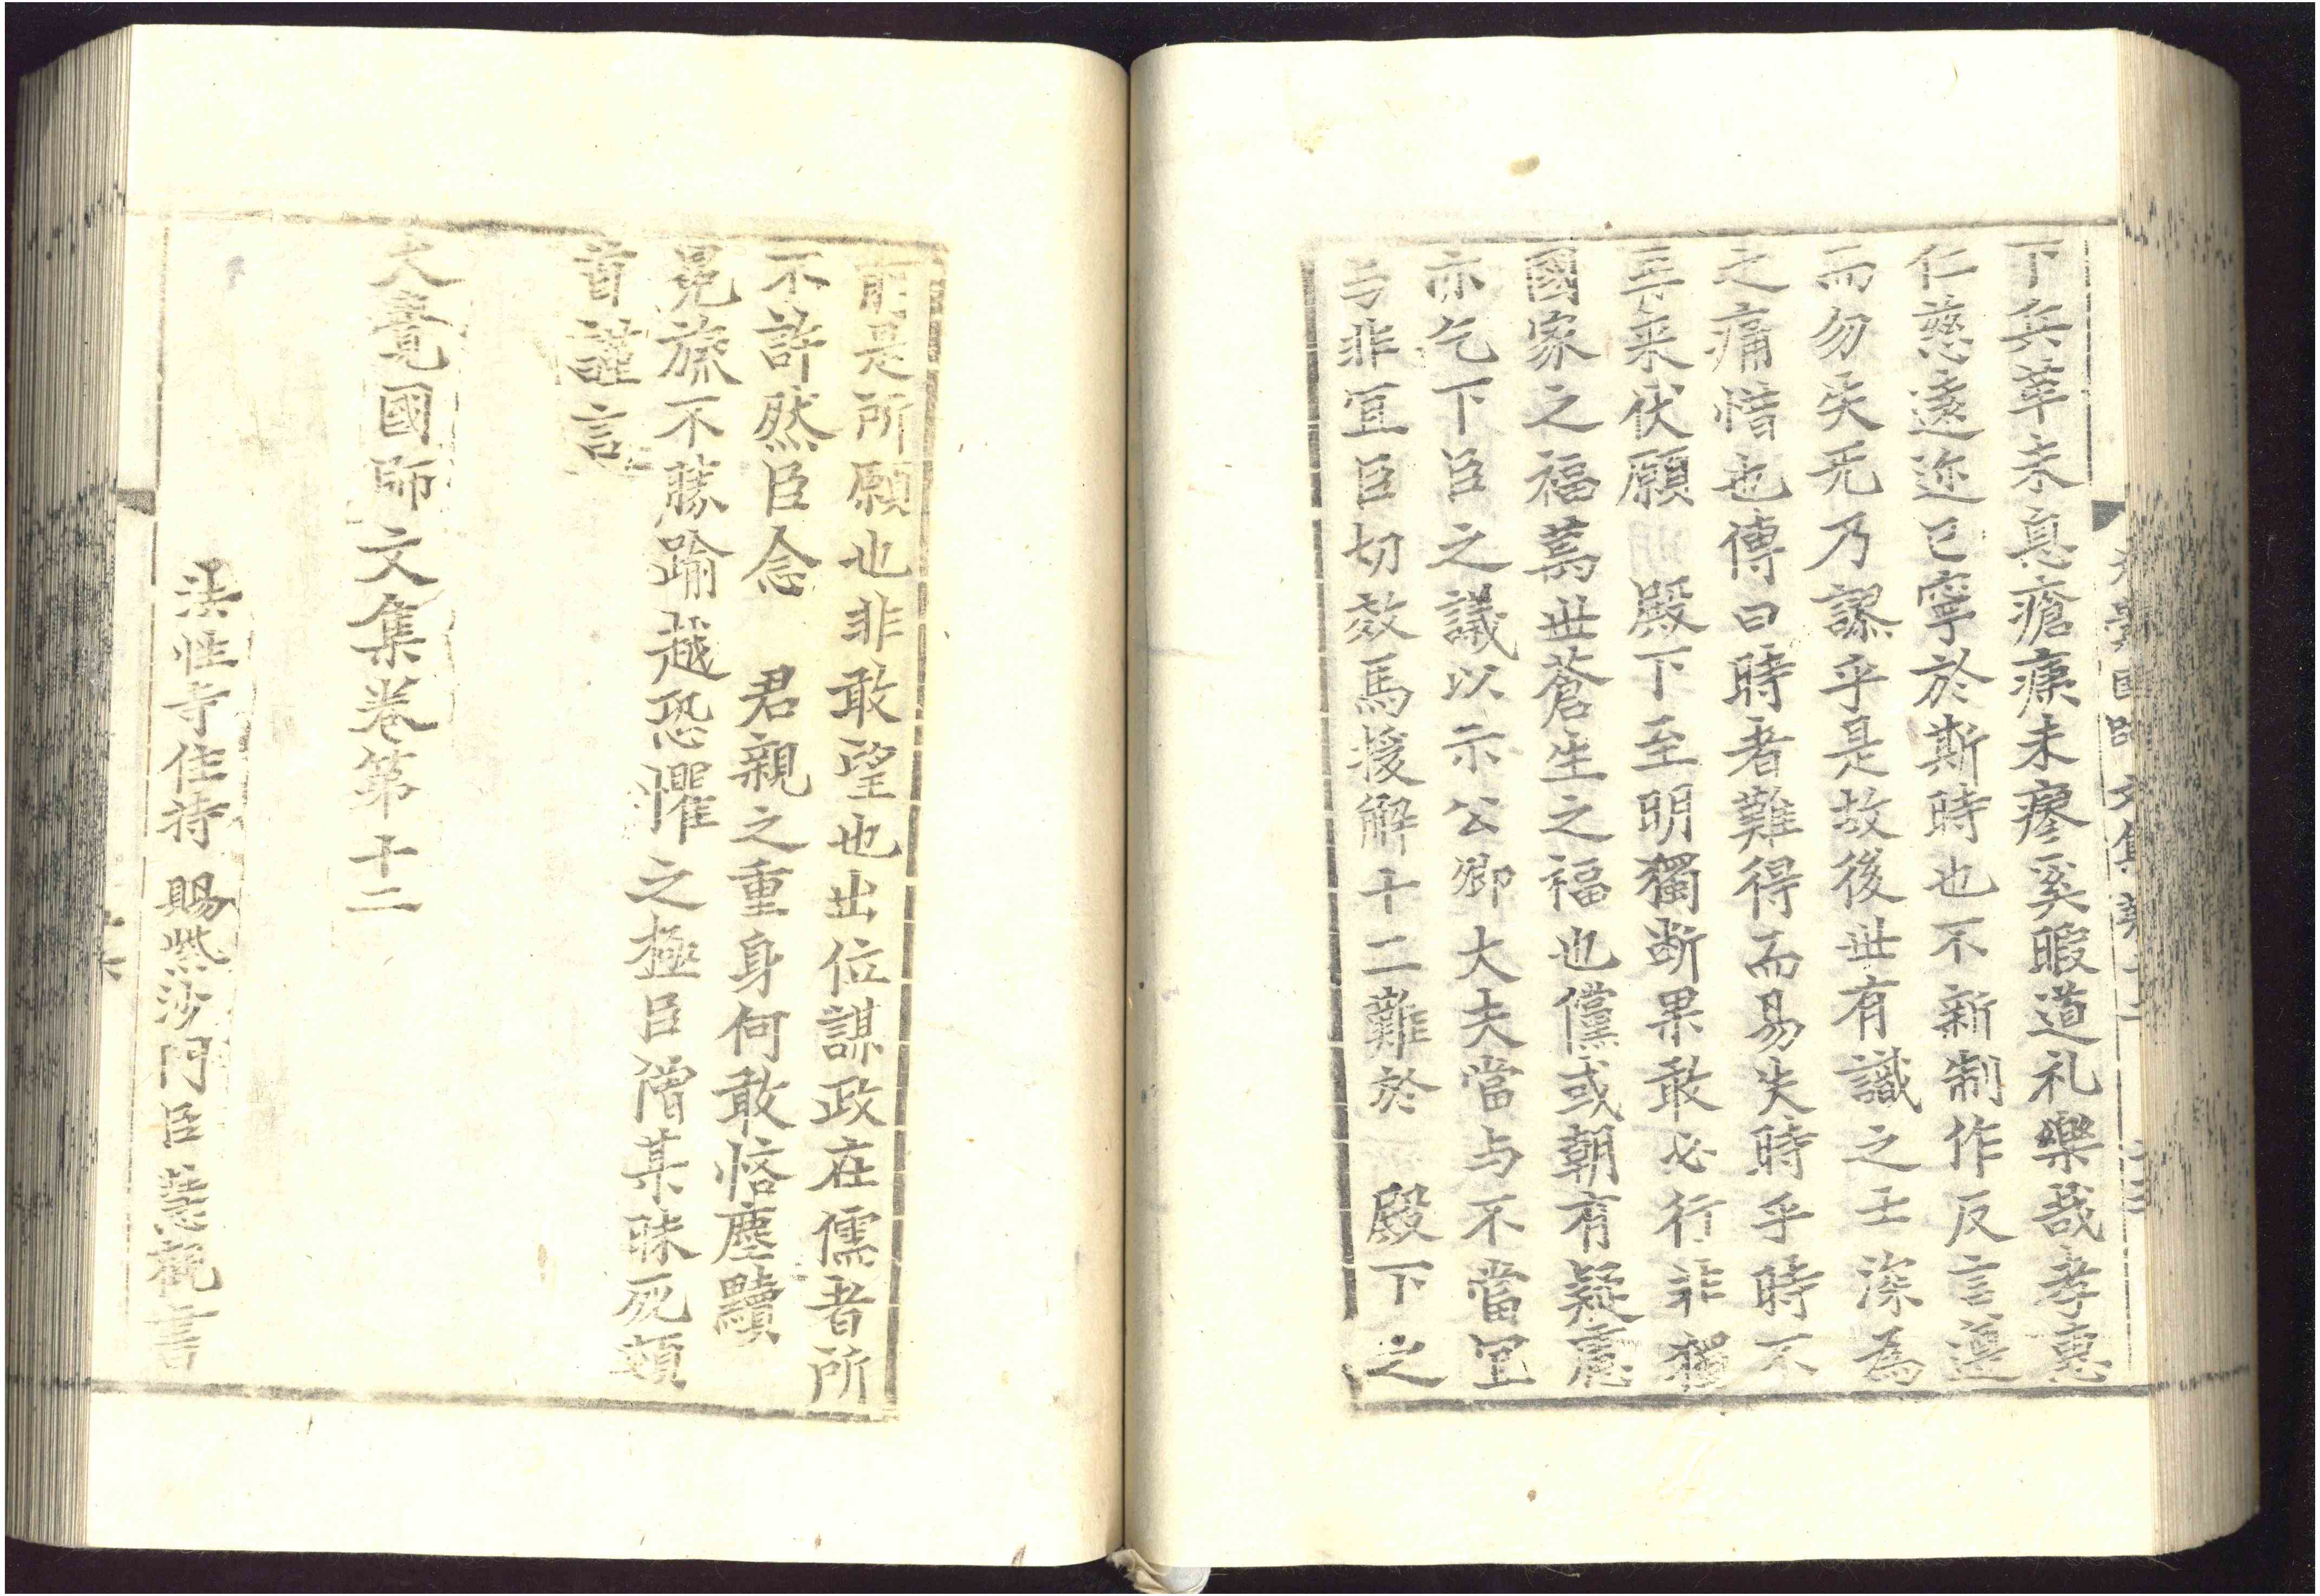 下兵革未息瘡痍未瘳奚暇道礼樂哉孝惠
仁慈遂迩已寧於斯時也不新制作反言遑
而勿失无乃謬乎是故後世有識之士深為
之痛惜也傳曰時者難得而易失時乎時不
再来伏願 殿下至明獨断果敢必行非獨
國家之福萬世蒼生之福也儻或朝有疑慮
亦乞下臣之議以示公卿大夫當与不當宜
与非宜臣切效馬援解十二難於 殿下之
大覺國師文集第十二
前是所願也非敢望也出位謀政在儒者所
不許然臣念 君親之重身何敢悋塵黷
冕旒不勝踰越恐懼之極臣僧某昧死頓
首謹言
大覺國師文集卷第十二
法性寺住持 賜紫沙門臣慧觀書